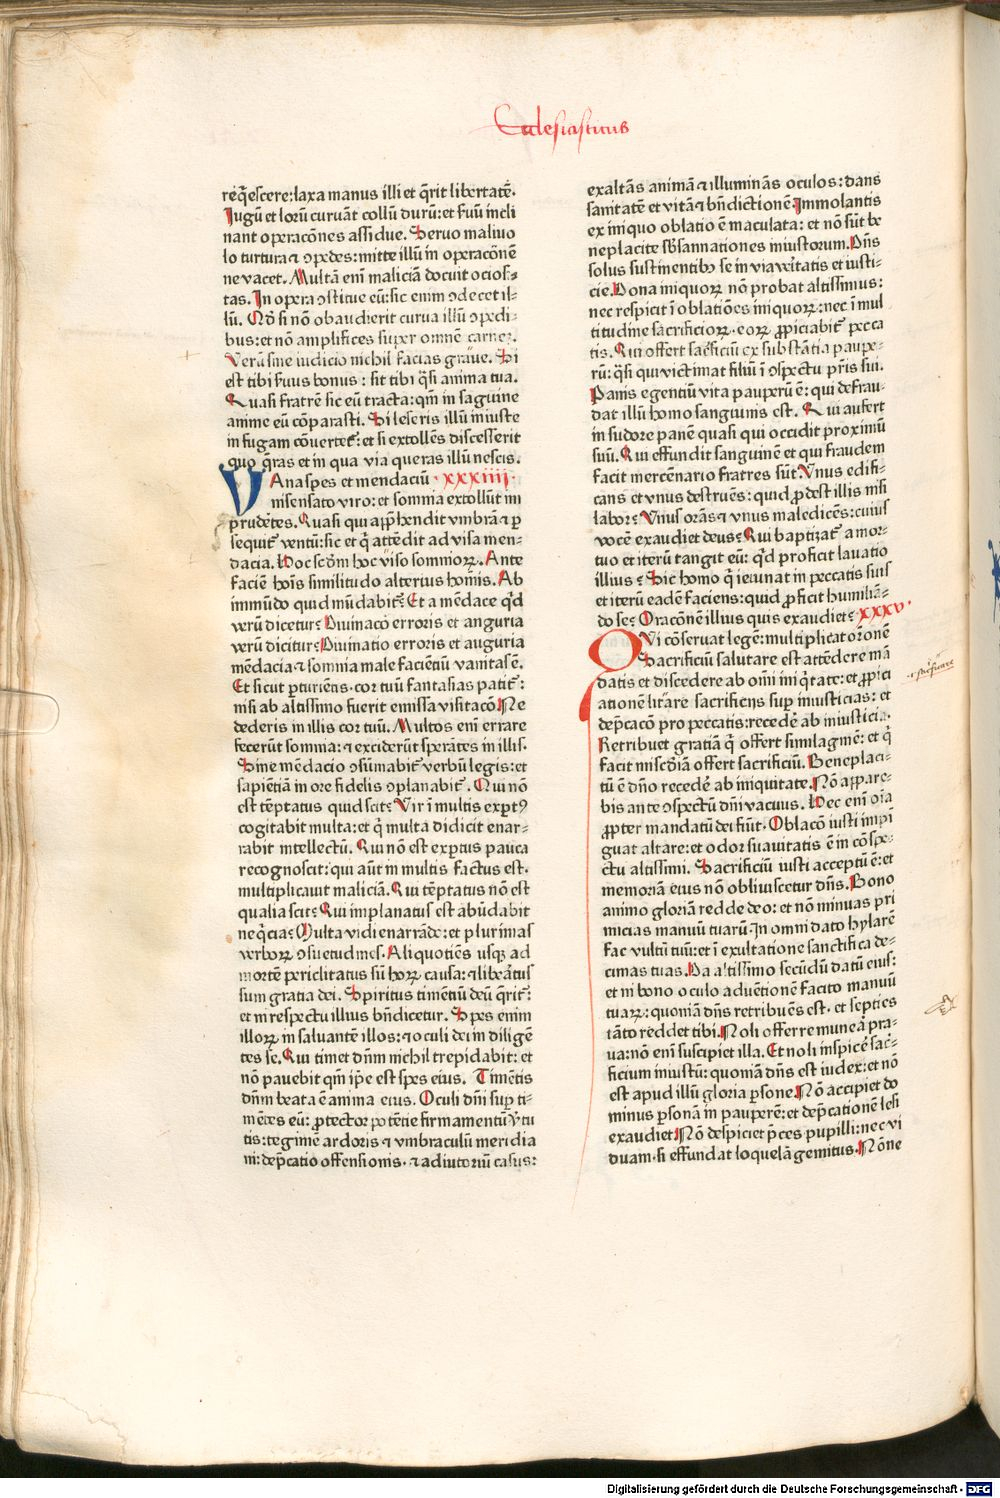 Ecclesiasticus
req̄escere: laxa manus illi et q̄rit libertatē.
Jugū et lorū curuāt collū durū: et ẜuū incli
nant operacōnes assidue. Seruo maliuo
lo turtura et ꝯpedes: mitte illū in operacōnē
ne vacet. Multā eni maliciā docuit ocios⸗
tas. In opera ꝯstitue eū: sic enim ꝯdecet il⸗
lū. Qd̕ si nō obaudierit curua illū ꝯpedi⸗
bus: et nō amplifices super omnē carnez.
Verū sine iudicio nichil facias graue. Si
est tibi ẜuus bonus : sit tibi q̄si anima tua.
Quasi fratrē sic eū tracta: qm̄ in saguine
anime eū cōparasti. Si leseris illū iniuste
in fugam cōuertet̕: et si extollēs discesserit
quo q̄ras et in qua via queras illū nescis.
VAna spes et mendaciū ·xxxiiii·
insensato viro: et somnia extollūt im
prudētes. Quasi qui app̄hendit vmbrā ⁊ ꝑ
sequit̕ ventū: sic et q̄ attēdit ad visa men⸗
dacia. Hoc scd̄m hoc viso somnioꝝ. Ante
faciē hoīs similitudo alterius homīs. Ab
immūdo quid mūdabit̕? Et a mēdace q̕d
verū dicetur? Diuinacō erroris et anguria
verū dicitur? Diuinatio erroris et auguria
mēdacia ⁊ somnia male faciētiū vanitas ē.
Et sicut ꝑturiēns· cor tuū fantasias patit̕:
nisi ab altissimo fuerit emissa visitacō. Ne
dederis in illis cor tuū. Multos eni errare
fecerūt somnia: ⁊ exciderūt sperātes in illis.
Sine mēdacio ꝯsūmabit̕ verbū legis: et
sapiētiā in ore fidelis ꝯplanabit̕. Qui nō
est tēptatus quid scit? Vir ī multis expt̕ꝰ
cogitabit multa: et q̄ multa didicit enar⸗
rabit intellectū. Qui nō est exptus pauca
recognoscit: qui aūt in multis factus est·
multiplicauit maliciā. Qui tēptatus nō est
qualia scit? Qui implanatus est abūdabit
neq̄cia? Multa vidi enarrādo: et plurimas
verboꝝ ꝯsuetudines. Aliquotiēs usqꝫ ad
mortē periclitatus sū hoꝝ causa: ⁊ liberatus
sum gratia dei. Spiritus timētiū deū q̄rit̕:
et in respectu illius bn̄dicetur. Spes enim
illoꝝ in saluantē illos: ⁊ oculi dei in diligē
tes se. Qui timet dn̄m nichil trepidabit: et
nō pauebit qm̄ ip̄e est spes eius. Timētis
dn̄m beata ē anima eius. Oculi dn̄i suꝑ ti⸗
mētes eū: ꝓtector potētie firmamentū v̕tu
tis: tegimē ardoris ⁊ vmbraculū meridia
ni: dep̄catio offensionis· ⁊ adiutoriū casus:
exaltās animā ⁊ illuminās oculos: dans
sanitatē et vitā ⁊ bn̄dictionē. Immolantis
ex iniquo oblatio ē maculata: et nō sūt be
neplacite sb̄sannationes iniustorum. Dn̄s
solus sustinentibꝫ se in via veritatis et iusti⸗
cie. Dona iniquoꝝ nō probat altissimus:
nec respicit ī oblatiōes iniquoꝝ: nec ī mul
titudine sacrificioꝝ· eoꝝ ꝓpiciabit̕ pecca
tis. Qui offert sac̕ficiū ex substātia paupe⸗
rū: q̄si qui victimat filiū ī ꝯspectu pr̄is sui.
Panis egentiū vita pauperū ē: qui defrau⸗
dat illū homo sanguinis est. Qui aufert
in sudore panē quasi qui occidit proximū
suū. Qui effundit sanguinē et qui fraudem
facit mercēnario fratres sūt. Vnus edifi⸗
cans et vnus destruēs: quid ꝓdest illis nisi
labor? Vnus orās ⁊ vnus maledicēs: cuius
vocē exaudiet deus? Qui baptizat̕ a mor⸗
tuo et iterū tangit eū: q̕d proficit lauatio
illius? Sic homo q̄ ieiunat in peccatis suis
et iterū eadē faciens: quid ꝓficit humiliā⸗
do se? Oracōnē illius quis exaudiet? ·xxxv·
QVi cōseruat legē: multiplicat or̄onē
Sacrificiū salutare est attēdere mā
datis et discedere ab oīni iniq̄tate: et ꝓpici
ationē litare sacrificijs suꝑ iniusticias: et
dep̄cacō pro peccatis: recedē ab iniusticia.
Retribuet gratiā q̄ offert similaginē: et q̄
facit mis̄cdiā offert sacrificiū. Beneplaci⸗
tū ē dn̄o recedē ab iniquitate. Nō appare⸗
bis ante ꝯspectū dn̄i vacuus. Hec eni oīa
ꝓpter mandatū dei fiūt. Oblacō iusti impī
guat altare: et odor suauitatis ē in cōspe⸗
ctu altissimi. Sacrificiū iusti acceptū ē: et
memoriā eius nō obliuiscetur dn̄s. Bono
animo gloriā redde deo: et nō minuas pri
micias manuū tuarū. In omni dato hylarē
fac vultū tuū: et ī exultatione sanctifica de⸗
cimas tuas. Da altissimo secūdū datū eius:
et in bono oculo aduētionē facito manuū
tuaꝝ: quoniā dn̄s retribuēs est· et septies
tāto reddet tibi. Noli offerre munera pra⸗
ua: nō eni suscipiet illa. Et noli inspicē sac̕⸗
ficium iniustū: quoniā dn̄s est iudex: et nō
est apud illū gloria ꝑsone. Nō accipiet do
minus ꝑsonā in pauperē: et dep̄cationē lesi
exaudiet. Nō despiciet p̄ces pupilli: nec vi
duam· si effundat loquelā gemitus. Nōne
Digitalisierung gefördert durch die Deutsche Forschungsgemeinschaft - DFG